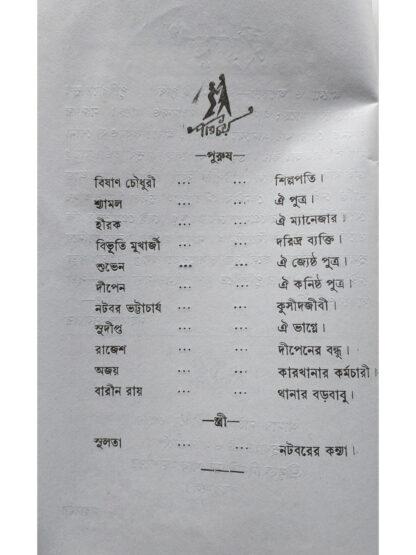 পরিচয়
—পুরুষ—
বিষাণ চৌধুরী ... ... শিল্পপতি।
শ্যামল ... ... ঐ পুত্র।
হীরক ... ... ঐ ম্যানেজার।
বিভূতি মুখার্জী ... ... দরিদ্র ব্যক্তি।
শুভেন ... ... ঐ জ্যেষ্ঠ পুত্র।
দীপেন ... ... ঐ কনিষ্ঠ পুত্র।
নটবর ভট্টাচার্য ... ... কুসীদজীবী।
সুদীপ্ত ... ... ঐ ভাগ্নে।
রাজেশ ... ... দীপেনের বন্ধু।
অজয় ... ... কারখানার কর্মচারী।
বারীন রায় ... ... থানার বড়বাবু।
—স্ত্রী—
সুলতা ... ... নটবরের কন্যা।